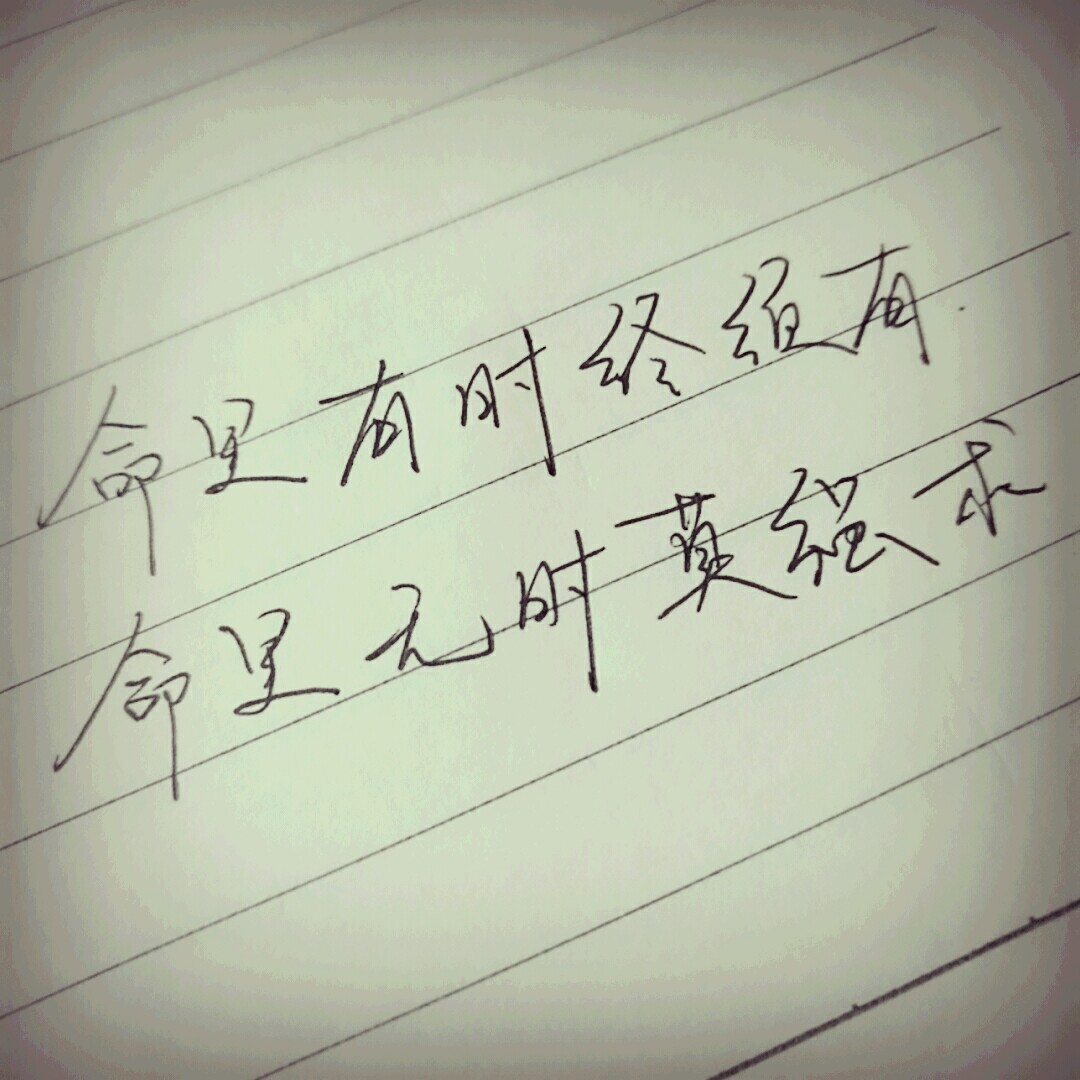 命里有时终须有.
命里无时莫强求